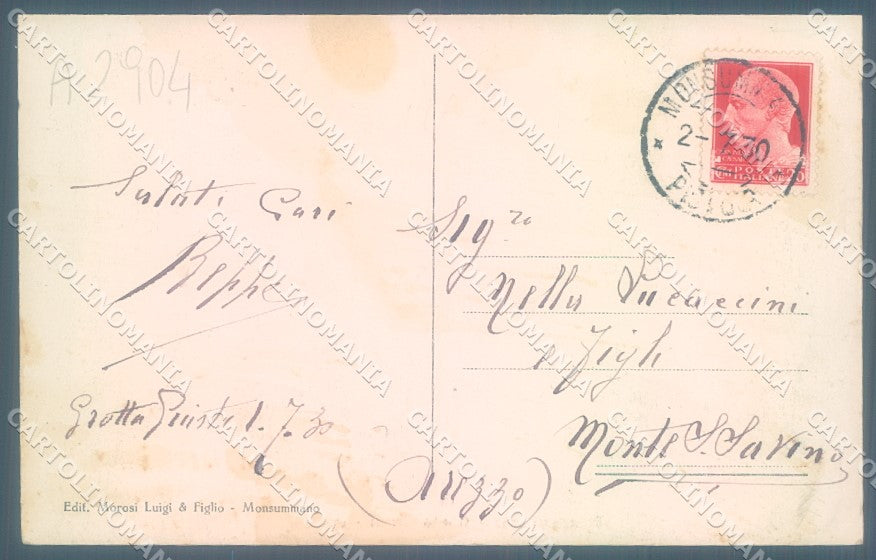 A 2904
Saluti Cari
Beppe
Grotta Giusti 1. 7. 30
Edit. Morosi Luigi & Figlio - Monsummano
MONSUMMANO
2- 30
PISTOIA
Sig.ra
Nella
e Figli
Monte S. Savino
(Arezzo)
CARTOLINOMANIA